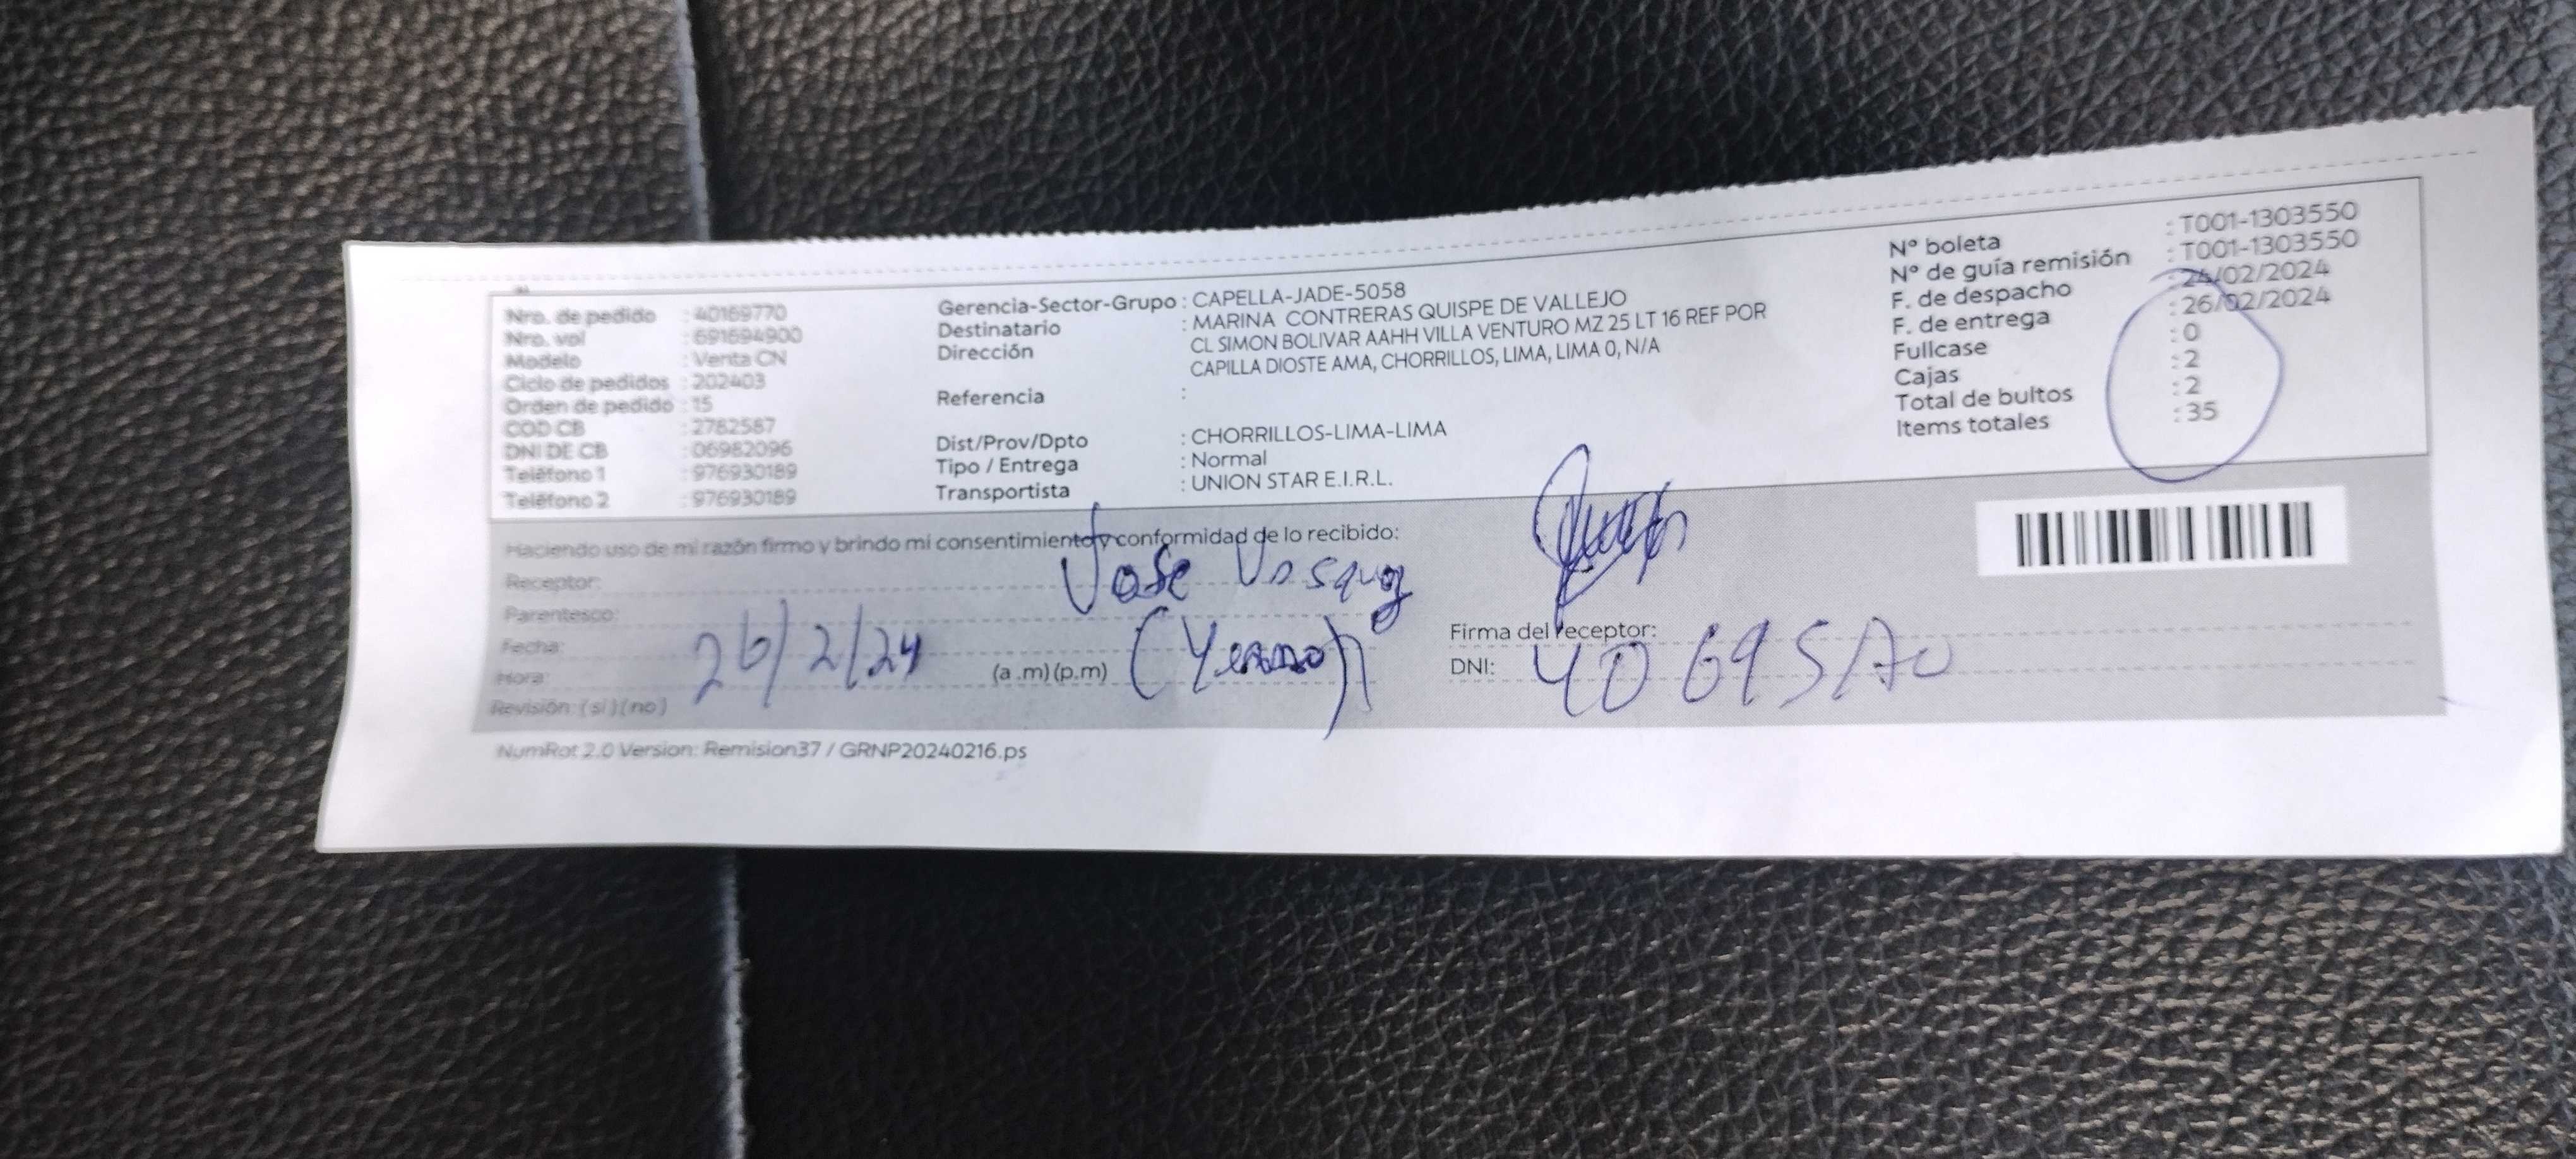 Nro. de pedido : 40169770
Nro. vol : 691694900
Modelo : Venta CN
Ciclo de pedidos : 202403
Orden de pedido : 15
COD CB : 2782587
DNI DE CB : 06982096
Teléfono 1 : 976930189
Teléfono 2 : 976930189
Gerencia-Sector-Grupo : CAPELLA-JADE-5058
Destinatario : MARINA CONTRERAS QUISPE DE VALLEJO
Dirección : CL SIMON BOLIVAR AAHH VILLA VENTURO MZ 25 LT 16 REF POR
CAPILLA DIOSTE AMA, CHORRILLOS, LIMA, LIMA 0, N/A
Referencia :
Dist/Prov/Dpto : CHORRILLOS-LIMA-LIMA
Tipo / Entrega : Normal
Transportista : UNION STAR E.I.R.L.
N° boleta : T001-1303550
N° de guía remisión : T001-1303550
F. de despacho : 24/02/2024
F. de entrega : 26/02/2024
Fullcase : 0
Cajas : 2
Total de bultos : 2
Items totales : 35
Haciendo uso de mi razón firmo y brindo mi consentimiento y conformidad de lo recibido:
Receptor: Jose Vasquez
Parentesco: (Yerno)
Fecha: 26/2/24
Hora: (a .m) (p.m)
Revisión: ( si ) ( no )
Firma del receptor:
DNI:
NumRot 2.0 Version: Remision37 / GRNP20240216.ps